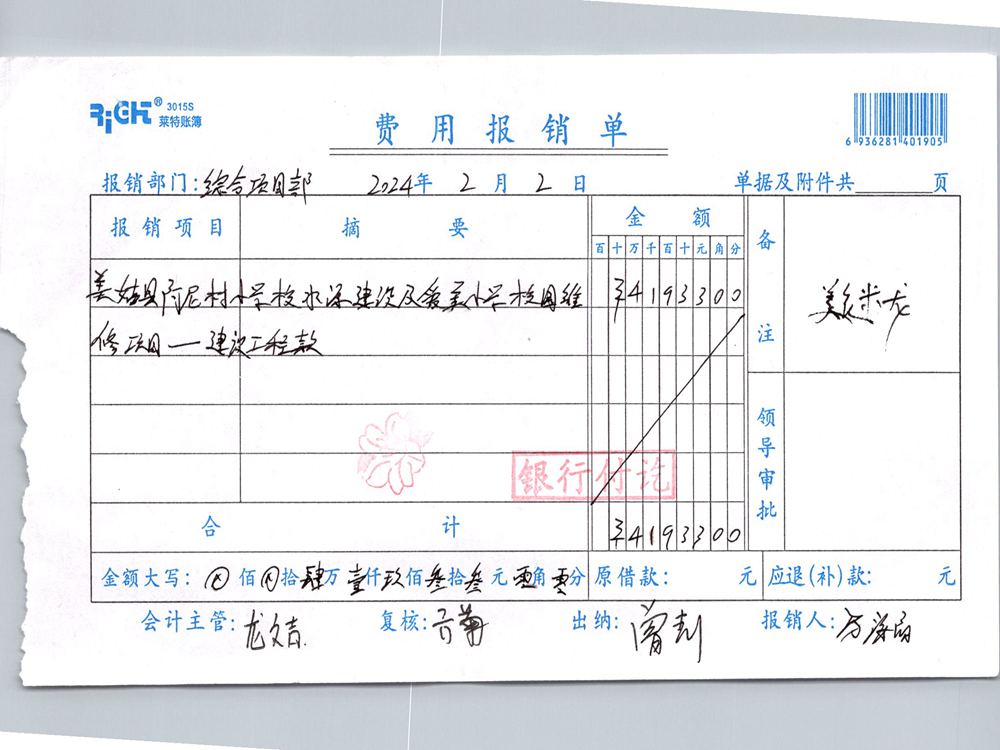 RiGHT® 3015S
莱特账簿
费用报销单
6 936281 401905
报销部门：综合项目部 2024年 2月 2日 单据及附件共 页
报销项目 摘要 金额 备注
百十万千百十元角分
美姑县 尼村小学校水源建设及 美小学校园维 ¥4193300
修项目—建设工程款
银行付讫
领导审批
合计 ¥4193300
金额大写：⊗佰⊗拾肆万壹仟玖佰叁拾叁元零角零分 原借款： 元 应退(补)款： 元
会计主管：龙文吉 复核： 出纳： 报销人：